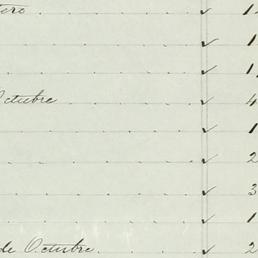 tero ✓ 1
✓ 1
✓ 1
Octubre ✓ 4
✓ 1
✓ 2
✓ 3
✓ 1
de Octubre ✓ 2